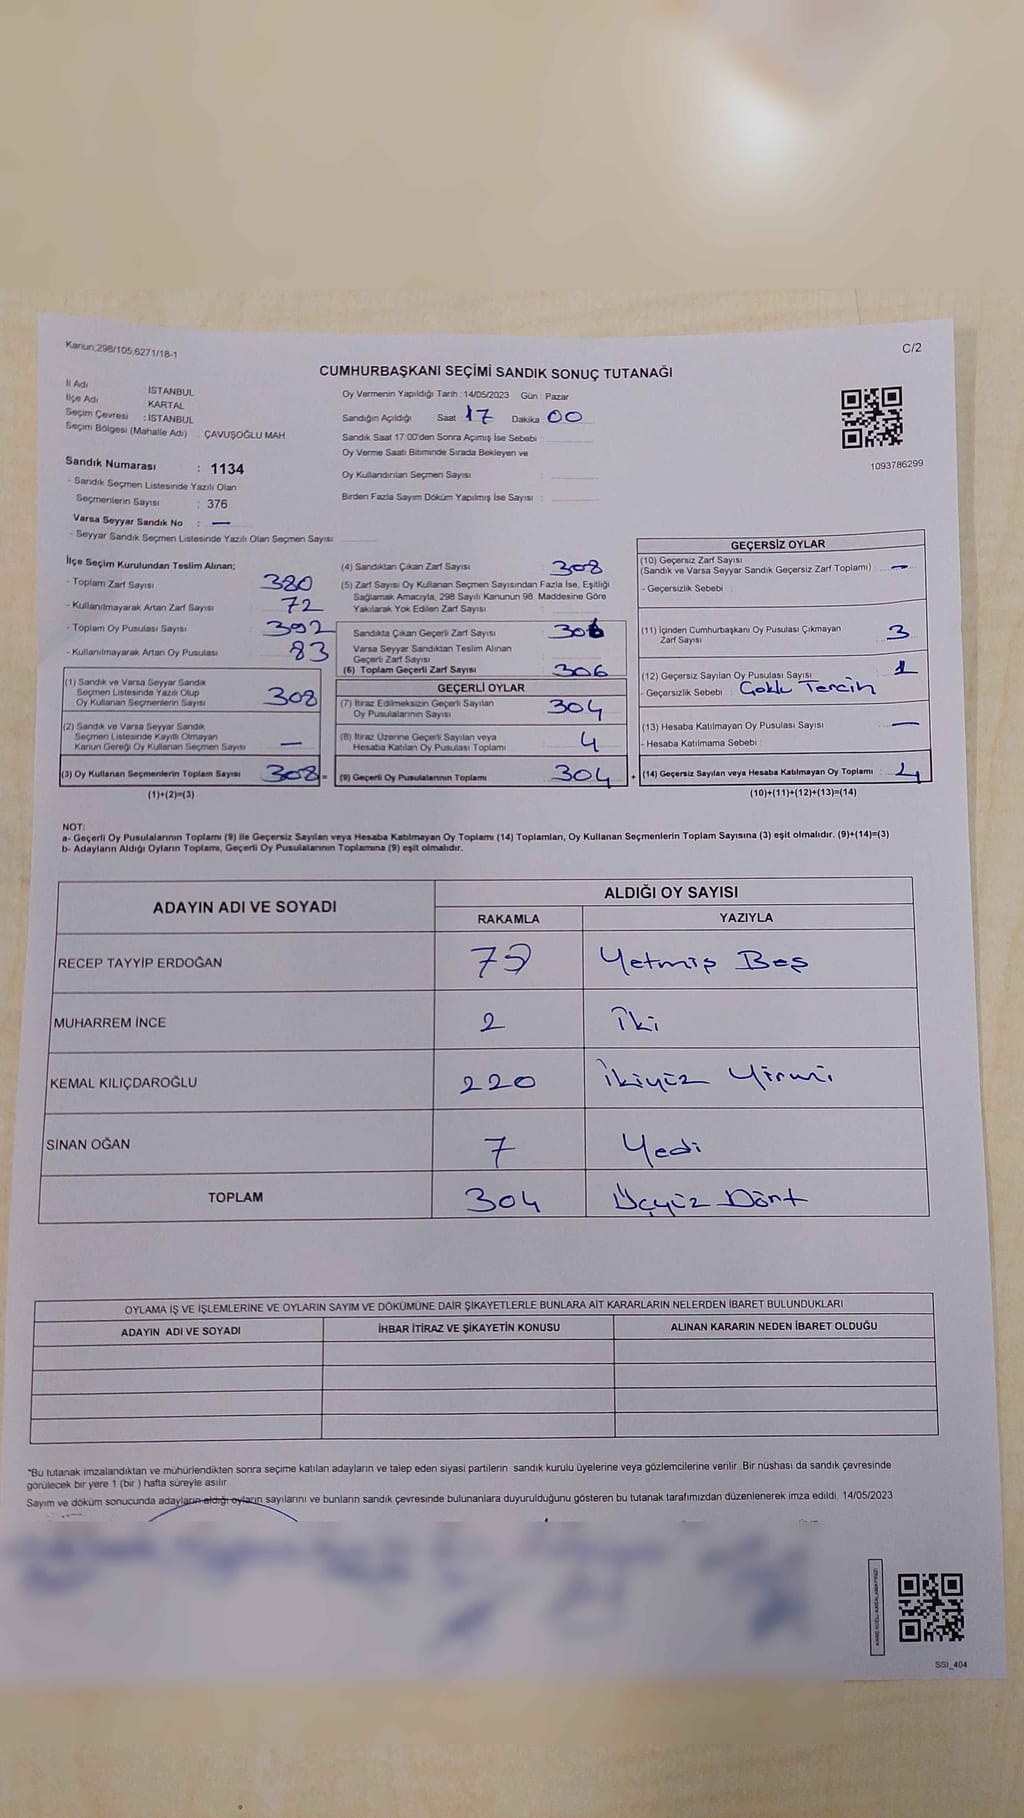 Kanun:298/105,6271/18-1
C/2
CUMHURBAŞKANI SEÇİMİ SANDIK SONUÇ TUTANAĞI
İl Adı : İSTANBUL
İlçe Adı : KARTAL
Seçim Çevresi : İSTANBUL
Seçim Bölgesi (Mahalle Adı) : ÇAVUŞOĞLU MAH
Sandık Numarası : 1134
- Sandık Seçmen Listesinde Yazılı Olan
Seçmenlerin Sayısı : 376
Varsa Seyyar Sandık No : —
- Seyyar Sandık Seçmen Listesinde Yazılı Olan Seçmen Sayısı:
Oy Vermenin Yapıldığı Tarih : 14/05/2023 Gün : Pazar
Sandığın Açıldığı Saat 17 Dakika : 00
Sandık Saat 17:00'den Sonra Açımış İse Sebebi :
Oy Verme Saati Bitiminde Sırada Bekleyen ve
Oy Kullandırılan Seçmen Sayısı :
Birden Fazla Sayım Döküm Yapılmış İse Sayısı :
1093786299
İlçe Seçim Kurulundan Teslim Alınan;
- Toplam Zarf Sayısı 380
- Kullanılmayarak Artan Zarf Sayısı 72
- Toplam Oy Pusulası Sayısı 392
- Kullanılmayarak Artan Oy Pusulası 83
(1) Sandık ve Varsa Seyyar Sandık
Seçmen Listesinde Yazılı Olup
Oy Kullanan Seçmenlerin Sayısı 308
(2) Sandık ve Varsa Seyyar Sandık
Seçmen Listesinde Kayıtlı Olmayan
Kanun Gereği Oy Kullanan Seçmen Sayısı —
(3) Oy Kullanan Seçmenlerin Toplam Sayısı 308 =
(1)+(2)=(3)
(4) Sandıktan Çıkan Zarf Sayısı : 308
(5) Zarf Sayısı Oy Kullanan Seçmen Sayısından Fazla İse, Eşitliği
Sağlamak Amacıyla, 298 Sayılı Kanunun 98. Maddesine Göre
Yakılarak Yok Edilen Zarf Sayısı :
Sandıkta Çıkan Geçerli Zarf Sayısı 306
Varsa Seyyar Sandıktan Teslim Alınan
Geçerli Zarf Sayısı
(6) Toplam Geçerli Zarf Sayısı 306
GEÇERLİ OYLAR
(7) İtiraz Edilmeksizin Geçerli Sayılan
Oy Pusulalarının Sayısı 304
(8) İtiraz Üzerine Geçerli Sayılan veya
Hesaba Katılan Oy Pusulası Toplamı 4
(9) Geçerli Oy Pusulalarının Toplamı 304 +
GEÇERSİZ OYLAR
(10) Geçersiz Zarf Sayısı
(Sandık ve Varsa Seyyar Sandık Geçersiz Zarf Toplamı) : —
- Geçersizlik Sebebi :
(11) İçinden Cumhurbaşkanı Oy Pusulası Çıkmayan
Zarf Sayısı 3
(12) Geçersiz Sayılan Oy Pusulası Sayısı 1
- Geçersizlik Sebebi : Çoklu Tercih
(13) Hesaba Katılmayan Oy Pusulası Sayısı —
- Hesaba Katılmama Sebebi :
(14) Geçersiz Sayılan veya Hesaba Katılmayan Oy Toplamı : 4
(10)+(11)+(12)+(13)=(14)
NOT:
a- Geçerli Oy Pusulalarının Toplamı (9) ile Geçersiz Sayılan veya Hesaba Katılmayan Oy Toplamı (14) Toplamları, Oy Kullanan Seçmenlerin Toplam Sayısına (3) eşit olmalıdır. (9)+(14)=(3)
b- Adayların Aldığı Oyların Toplamı, Geçerli Oy Pusulalarının Toplamına (9) eşit olmalıdır.
ADAYIN ADI VE SOYADI ALDIĞI OY SAYISI
RAKAMLA YAZIYLA
RECEP TAYYİP ERDOĞAN 75 Yetmiş Beş
MUHARREM İNCE 2 İki
KEMAL KILIÇDAROĞLU 220 İkiyüz Yirmi
SİNAN OĞAN 7 Yedi
TOPLAM 304 Üçyüz Dört
OYLAMA İŞ VE İŞLEMLERİNE VE OYLARIN SAYIM VE DÖKÜMÜNE DAİR ŞİKAYETLERLE BUNLARA AİT KARARLARIN NELERDEN İBARET BULUNDUKLARI
ADAYIN ADI VE SOYADI İHBAR İTİRAZ VE ŞİKAYETİN KONUSU ALINAN KARARIN NEDEN İBARET OLDUĞU
"Bu tutanak imzalandıktan ve mühürlendikten sonra seçime katılan adayların ve talep eden siyasi partilerin sandık kurulu üyelerine veya gözlemcilerine verilir. Bir nüshası da sandık çevresinde
görülecek bir yere 1 (bir ) hafta süreyle asılır.
Sayım ve döküm sonucunda adayların aldığı oyların sayılarını ve bunların sandık çevresinde bulunanlara duyurulduğunu gösteren bu tutanak tarafımızdan düzenlenerek imza edildi. 14/05/2023
SSI_404